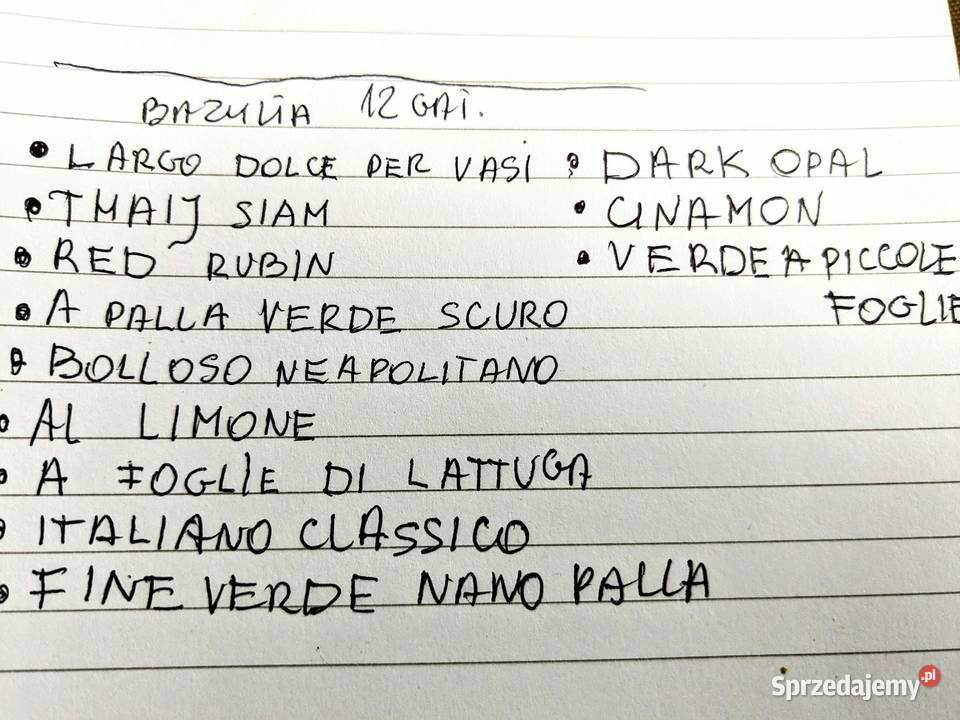 BAZYLIA 12 GAT.
• LARGO DOLCE PER VASI
• THAIJ SIAM
• RED RUBIN
• A PALLA VERDE SCURO
• BOLLOSO NEAPOLITANO
• AL LIMONE
• A FOGLIE DI LATTUGA
• ITALIANO CLASSICO
• FINE VERDE NANO PALLA
• DARK OPAL
• CINAMON
• VERDE A PICCOLE
FOGLIE
Sprzedajemy.pl